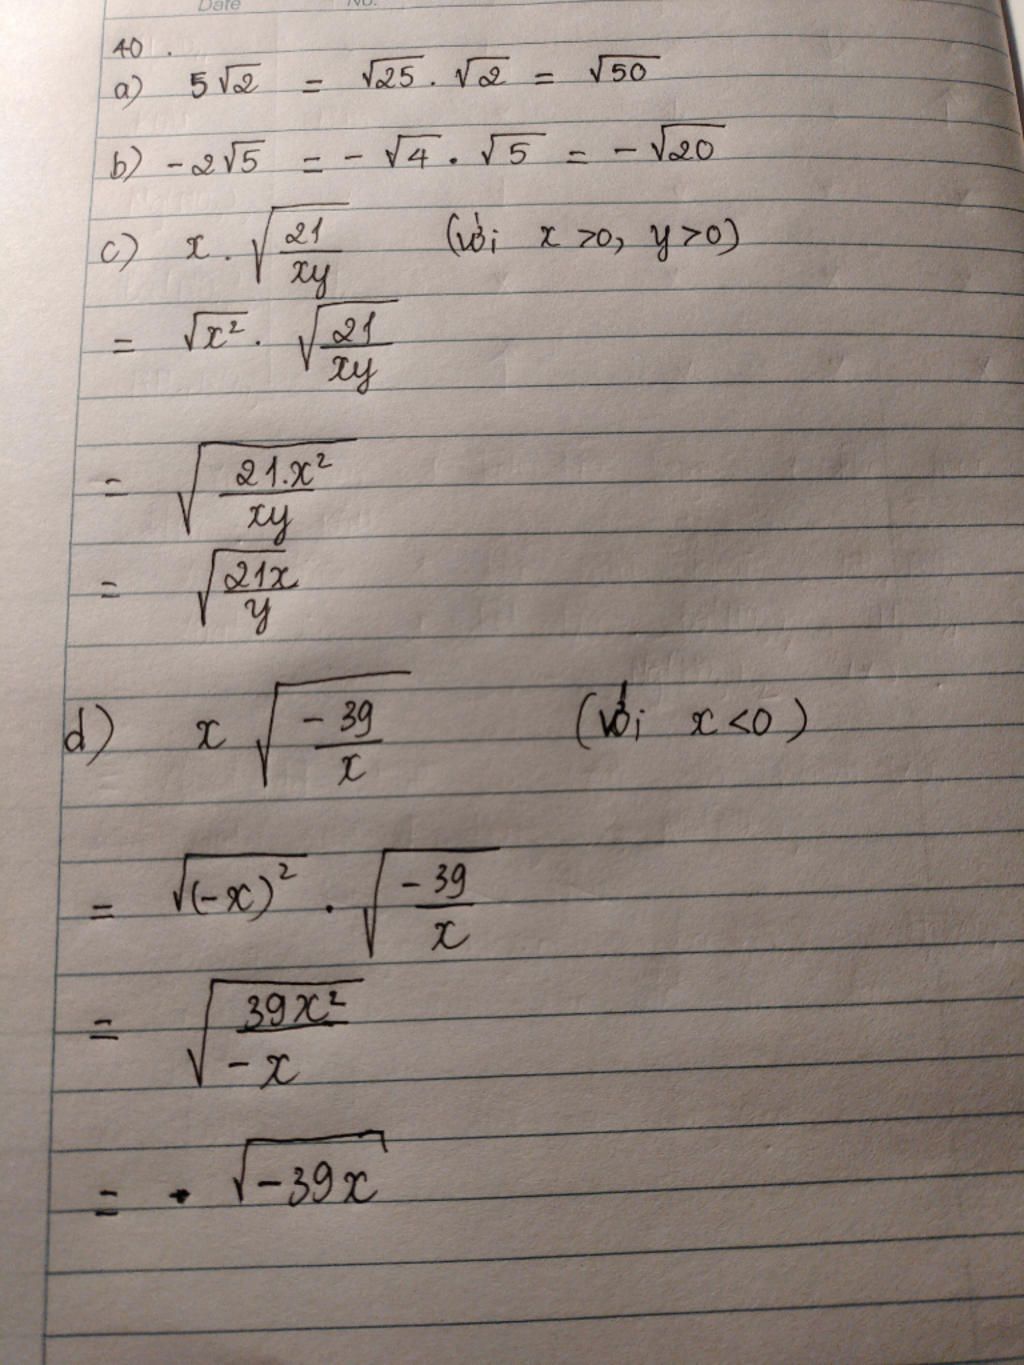 Date No.
40.
a) 5√2 = √25 . √2 = √50
b) -2√5 = -√4 . √5 = -√20
c) x . √(21/xy) (với x >0, y >0)
= √x² . √(21/xy)
= √(21.x²/xy)
= √(21x/y)
d) x √(-39/x) (với x <0)
= √(-x)² . √(-39/x)
= √(39x²/-x)
= - √-39x